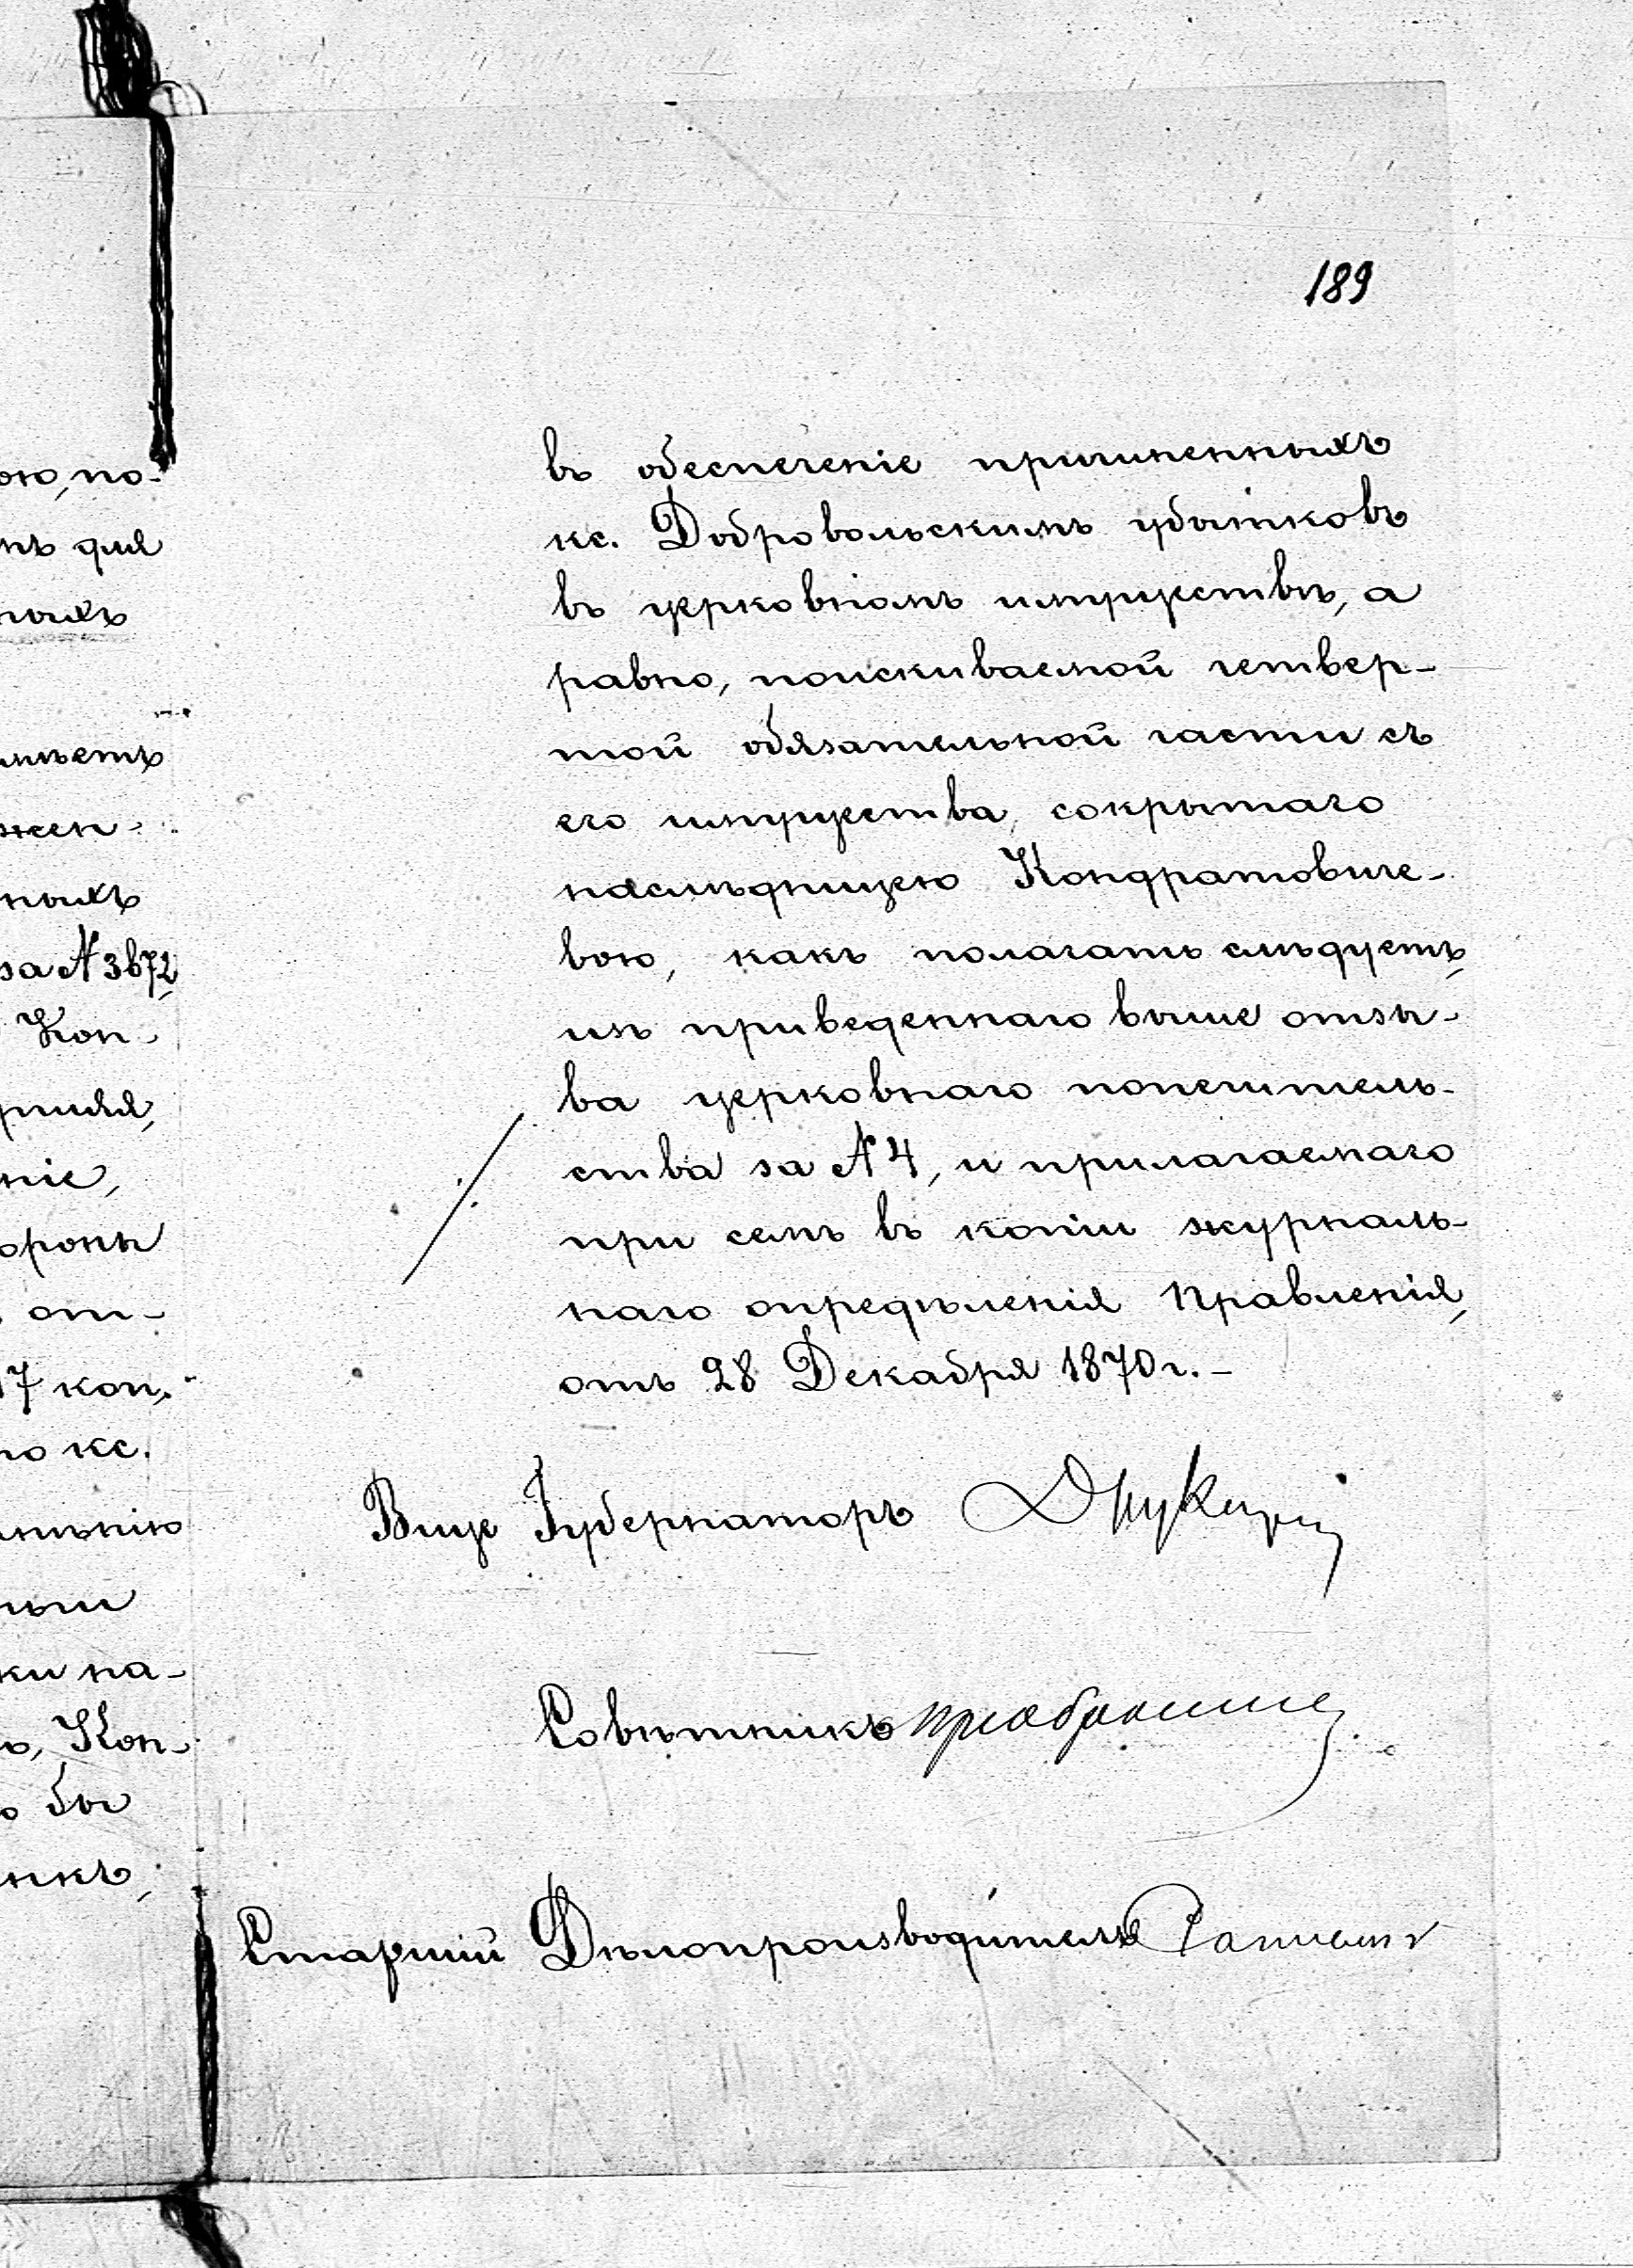 189
въ обезпеченіе причиненныхъ
кс. Добровольскимъ убытковъ
въ церковномъ имуществѣ, а
равно, поискиваемой четвер-
той обязательной части съ
его имущества, сокрытаго
наслѣдницею Кондратовиче-
вою, какъ полагать слѣдуетъ,
изъ приведеннаго выше отзы-
ва церковнаго попечитель-
ства за № 4, и прилагаемаго
при семъ въ копіи журналь-
наго опредѣленія Правленія,
отъ 28 Декабря 1870 г. -
Вице Губернаторъ
Совѣтникъ
Старшій Дѣлопроизводитель
ою, по-
для
ныхъ
имѣетъ
жен-
ныхъ
за № 3672,
Кон-
ніе,
ороны
от-
17 коп.
по кс.
ки на-
Кон-
бы